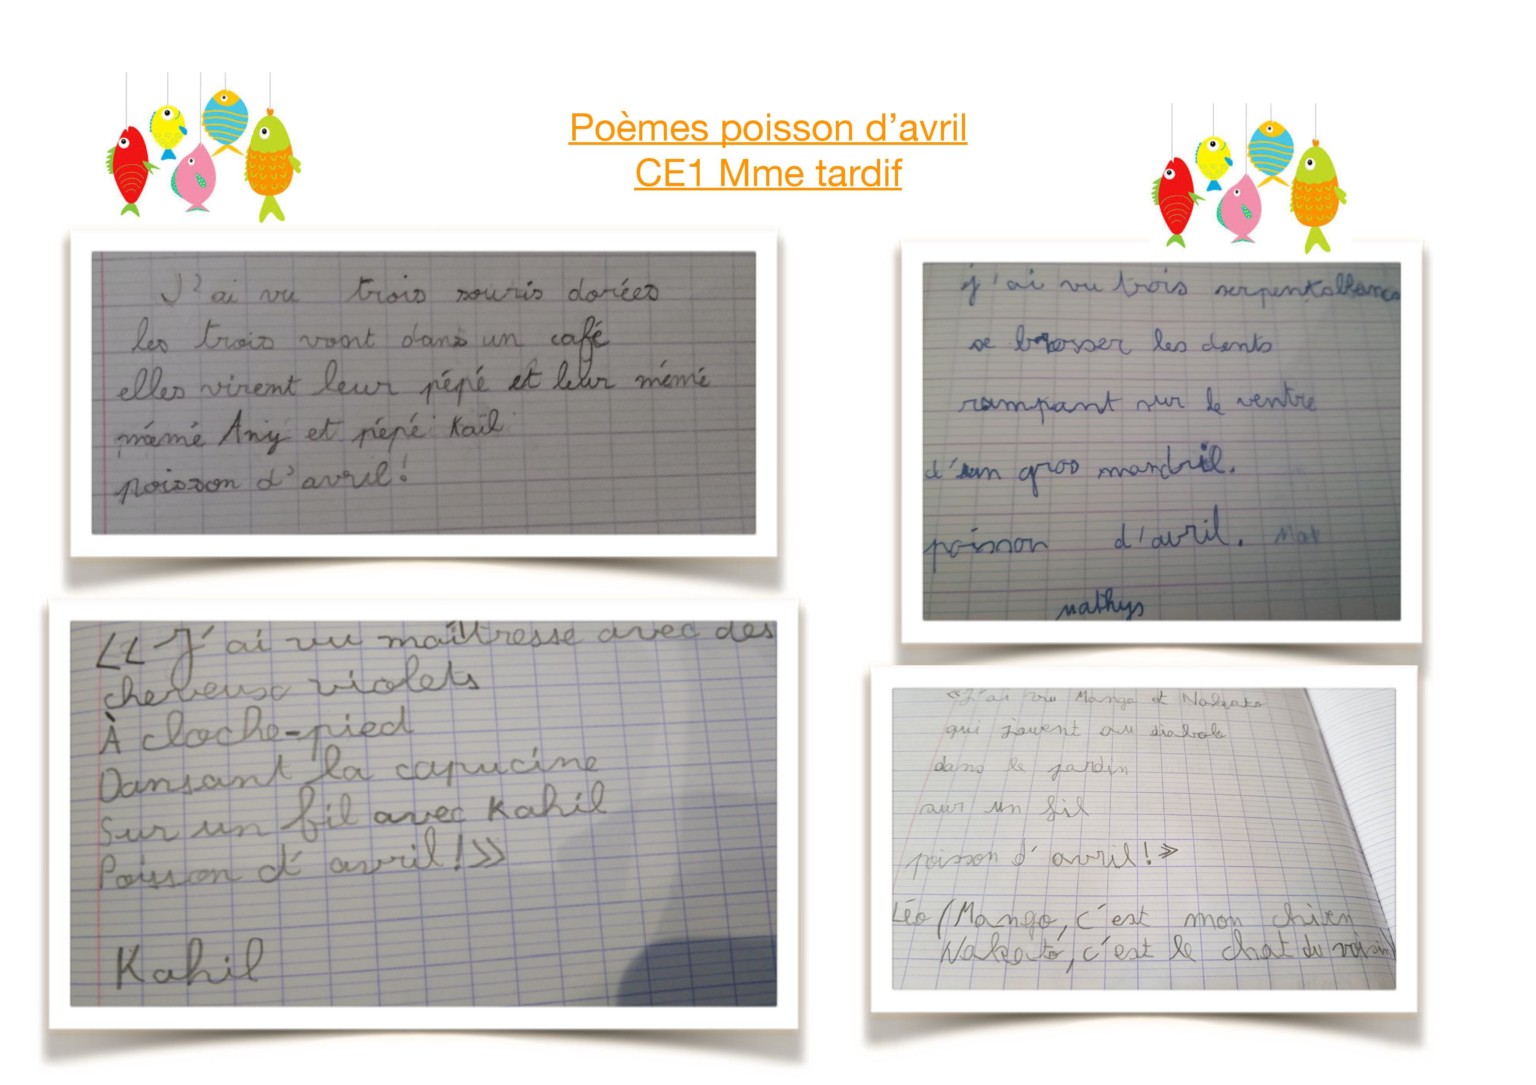 Poèmes poisson d’avril
CE1 Mme tardif
J'ai vu trois souris dorées
les trois vont dans un café
elles virent leur pépé et leur mémé
mémé Any et pépé Kail
poisson d'avril!
j'ai vu trois
se brosser les dents
rampant sur le ventre
d'un gros mandril.
poisson d'avril. Mat
mathys
<< J'ai vu maîtresse avec des
cheveux violets
À cloche-pied
Dansant la capucine
Sur un fil avec Kahil
Poisson d'avril!>>
Kahil
"J'ai vu Mango et
qui jouent au diabolo
dans le jardin
sur un fil
poisson d'avril!>>
Léo (Mango, c'est mon chien
c'est le chat du voisin